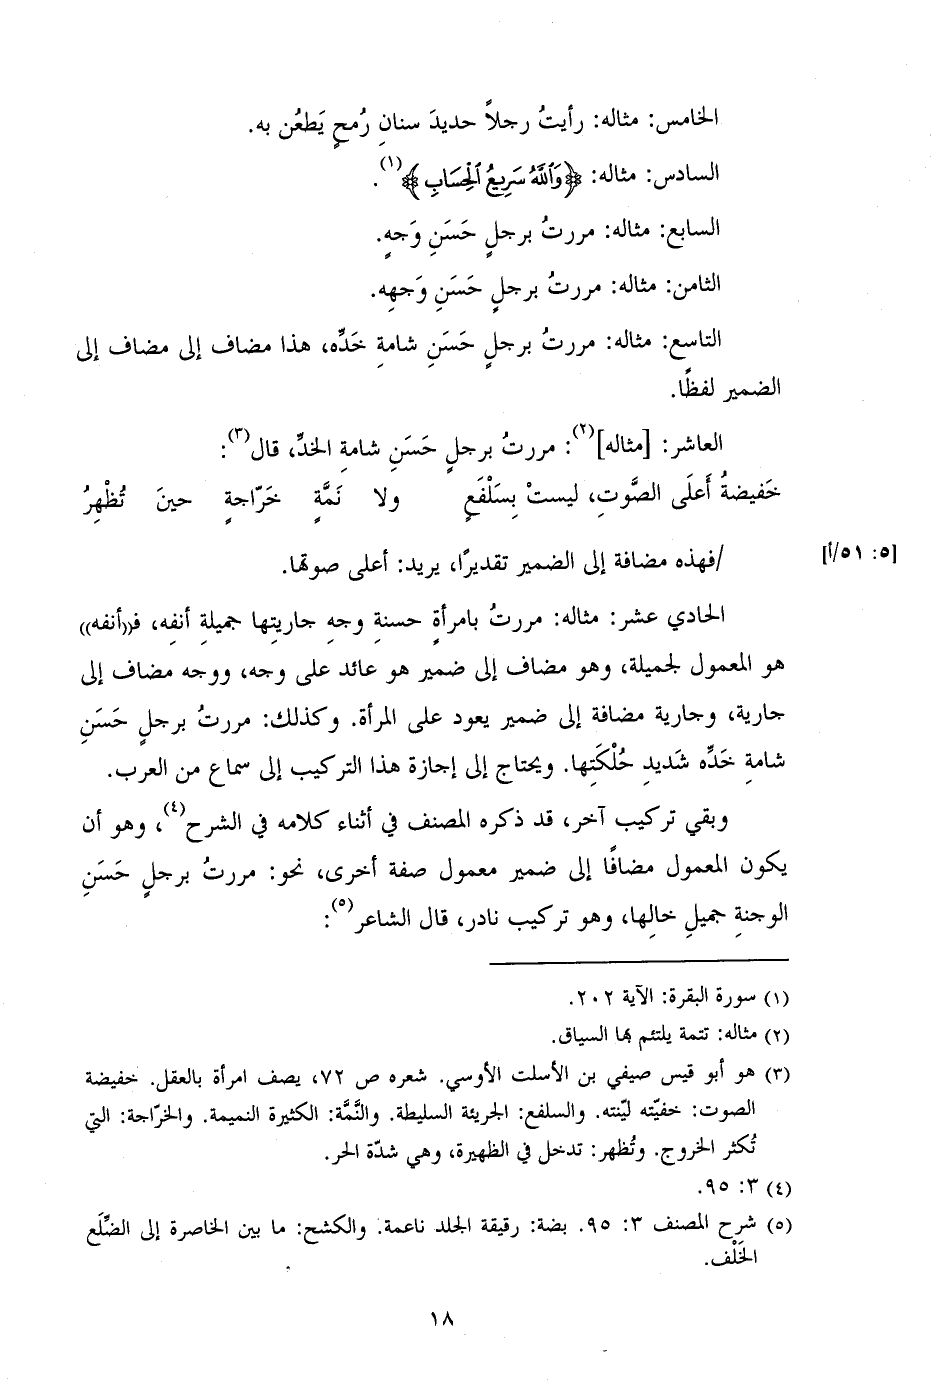 الخامس: مثاله: رأيتُ رجلاً حديدَ سنانِ رُمحٍ يَطعُن به.
السادس: مثاله: ﴿وَٱللَّهُ سَرِيعُ ٱلْحِسَابِ﴾(١).
السابع: مثاله: مررتُ برجلٍ حَسَنِ وَجهٍ.
الثامن: مثاله: مررتُ برجلٍ حَسَنِ وَجهِه.
التاسع: مثاله: مررتُ برجلٍ حَسَنِ شامةِ خَدِّه، هذا مضاف إلى مضاف إلى
الضمير لفظًا.
العاشر: [مثاله](٢): مررتُ برجلٍ حَسَنِ شامةِ الخدِّ، قال(٣):
خَفيضةُ أَعلَى الصَّوتِ، ليستْ بِسَلْفَعٍ ولا نَمَّةٍ خَرّاجةٍ حينَ تُظْهِرُ
[٥: ٥١/أ] /فهذه مضافة إلى الضمير تقديرًا، يريد: أعلى صوتها.
الحادي عشر: مثاله: مررتُ بامرأةٍ حسنةِ وجهِ جاريتِها جميلةِ أنفِه، فـ((أنفه))
هو المعمول لجميلة، وهو مضاف إلى ضمير هو عائد على وجه، ووجه مضاف إلى
جارية، وجارية مضافة إلى ضمير يعود على المرأة. وكذلك: مررتُ برجلٍ حَسَنِ
شامةِ خَدِّه شَديدِ حُلْكَتِها. ويحتاج إلى إجازة هذا التركيب إلى سماع من العرب.
وبقي تركيب آخر، قد ذكره المصنف في أثناء كلامه في الشرح(٤)، وهو أن
يكون المعمول مضافًا إلى ضمير معمول صفة أخرى، نحو: مررتُ برجلٍ حَسَنِ
الوجنةِ جميلِ خالِها، وهو تركيب نادر، قال الشاعر(٥):
(١) سورة البقرة: الآية ٢٠٢.
(٢) مثاله: تتمة يلتئم بها السياق.
(٣) هو أبو قيس صيفي بن الأسلت الأوسي. شعره ص ٧٢، يصف امرأة بالعقل. خفيضة
الصوت: خفيّته ليّنته. والسلفع: الجريئة السليطة. والنَّمَّة: الكثيرة النميمة. والخرّاجة: التي
تُكثر الخروج. وتُظهر: تدخل في الظهيرة، وهي شدّة الحر.
(٤) ٣: ٩٥.
(٥) شرح المصنف ٣: ٩٥. بضة: رقيقة الجلد ناعمة. والكشح: ما بين الخاصرة إلى الضِّلَع
الخَلْف.
١٨